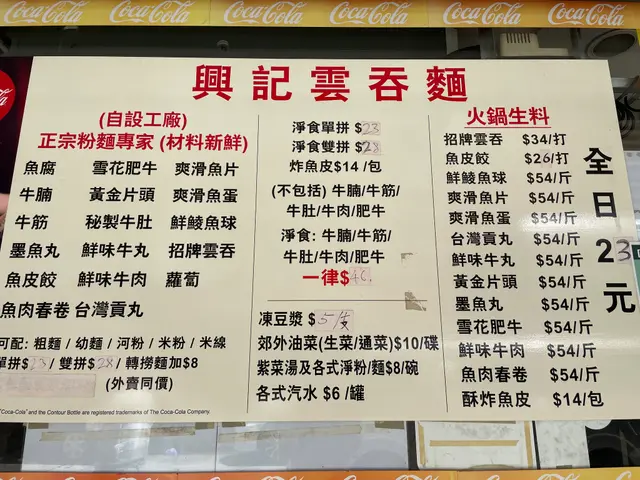 Coca-Cola Coca-Cola Coca-Cola Coca-Cola Coca-Cola Coca-Cola
興記雲吞麵
(自設工廠)
正宗粉麵專家 (材料新鮮)
魚腐 雪花肥牛 爽滑魚片
牛腩 黃金片頭 爽滑魚蛋
牛筋 秘製牛肚 鮮鯪魚球
墨魚丸 鮮味牛丸 招牌雲吞
魚皮餃 鮮味牛肉 蘿蔔
魚肉春卷 台灣貢丸
可配: 粗麵 / 幼麵 / 河粉 / 米粉 / 米線
單拼$23 / 雙拼$28 / 轉撈麵加$8
(外賣同價)
"Coca-Cola" and the Contour Bottle are registered trademarks of The Coca-Cola Company.
淨食單拼 $23
淨食雙拼 $28
炸魚皮$14 /包
(不包括) 牛腩/牛筋/
牛肚/牛肉/肥牛
淨食: 牛腩/牛筋/
牛肚/牛肉/肥牛
一律$40
凍豆漿 $5/支
郊外油菜(生菜/通菜)$10/碟
紫菜湯及各式淨粉/麵$8/碗
各式汽水 $6 /罐
火鍋生料
招牌雲吞 $34/打
魚皮餃 $26/打
鮮鯪魚球 $54/斤
爽滑魚片 $54/斤
爽滑魚蛋 $54/斤
台灣貢丸 $54/斤
鮮味牛丸 $54/斤
黃金片頭 $54/斤
墨魚丸 $54/斤
雪花肥牛 $54/斤
鮮味牛肉 $54/斤
魚肉春卷 $54/斤
酥炸魚皮 $14/包
全日23元
Coca-Cola Coca-Cola Coca-Cola Coca-Cola Coca-Cola